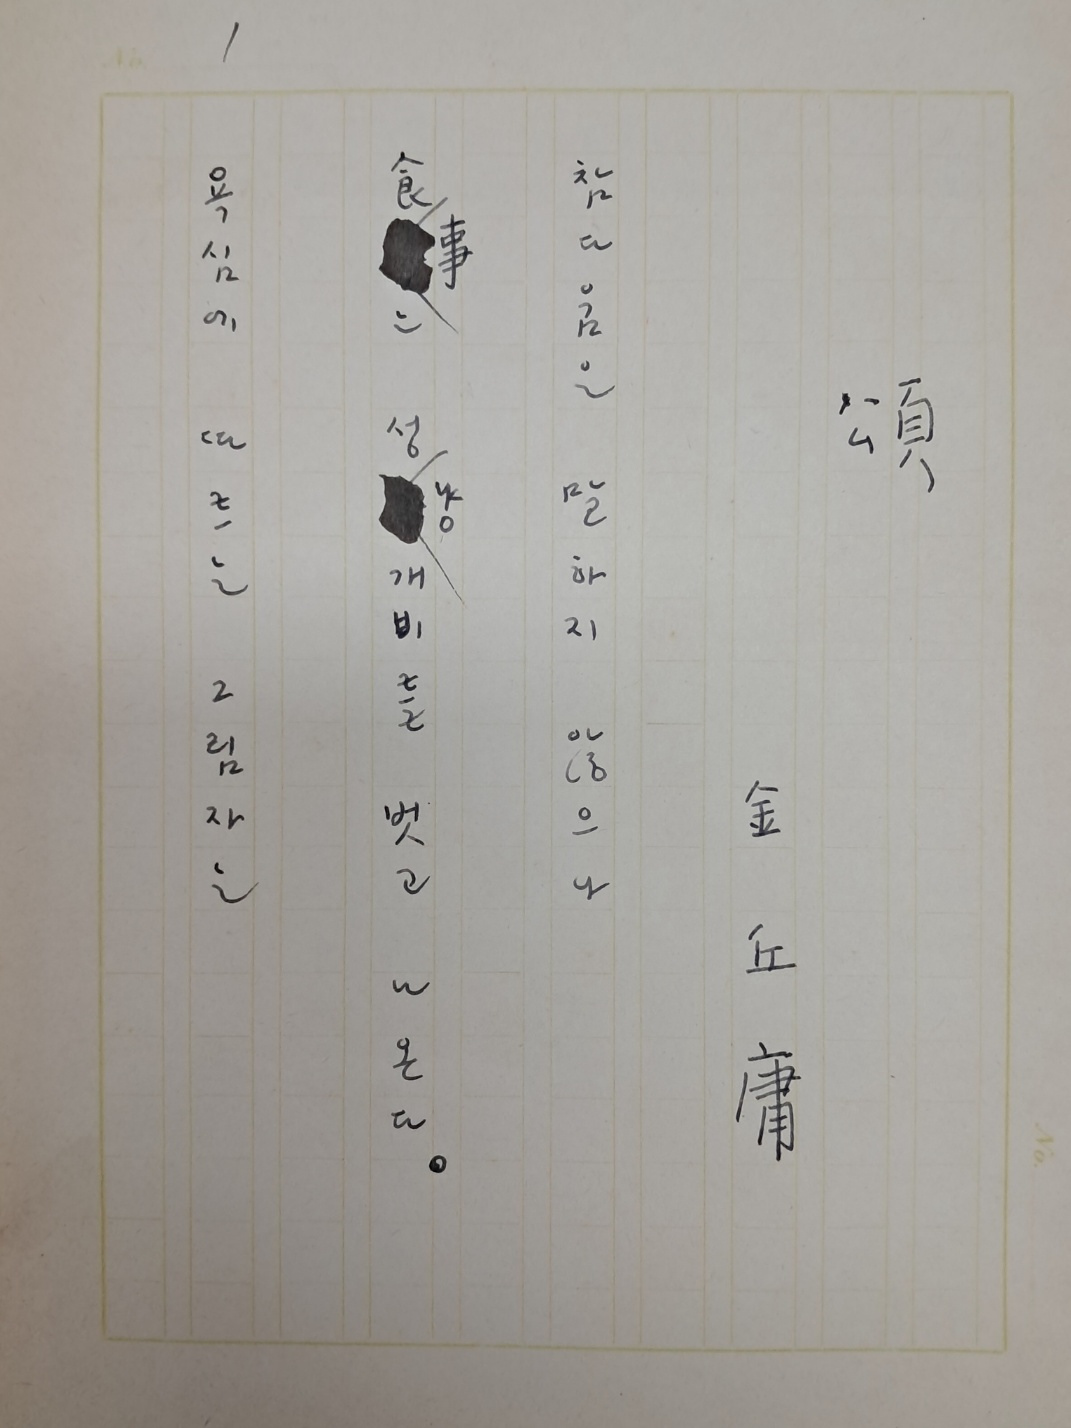 頌
金丘庸
참다움은 말하지 않으나
食事는 성냥개비를 벗고 나온다。
욕심에 따르는 그림자는
1
No.